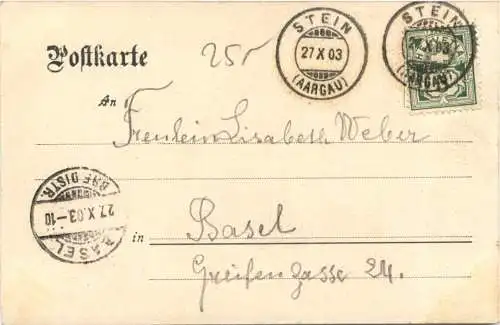 STEIN
27 X 03
(AARGAU)
STEIN
X 03
(AARGAU)
Postkarte
25
An
Fräulein Lisabeth Weber
BRF. DISTR.
27. X. 03 – 10
BASEL
in Basel
Greifengasse 24.